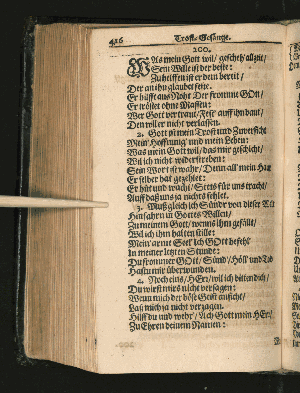 416 Trost-Gesänge.
200.
WAs mein Gott wil/ gescheh allzeit/
Sein Wille ist der beste:
Zu helffen ist er dem bereit/
Der an ihn glaubet feste.
Er hilfft aus Noht Der fromme GOtt/
Er tröstet ohne Massen:
Wer Gott vertraut/ Fest auff ihn baut/
Den wil er nicht verlassen.
2. Gott ist mein Trost und Zuversicht
Mein Hoffnung und mein Leben:
Was mein Gott wil/ das mir geschicht/
Wil ich nicht widerstreben:
Sein Wort ist wahr/ Denn all mein Har
Er selber hat gezehlet:
Er hüt und wacht/ Stets für uns tracht/
Auff daß uns ja nichts fehlet.
3. Muß gleich ich Sünder von dieser Welt
Hinfahrn in Gottes Willen/
Zu meinem Gott/ wenns ihm gefält/
Wil ich ihm halten stille:
Mein arme Seel Ich GOtt befehl
In meiner letzten Stunde:
Du frommer GOtt/ Sünd/ Höll und Tod
Hast mir überwunden.
4. Noch eins/ HErr/ wil ich bitten dich/
Du wirst mirs nicht versagen:
Wenn mich der böse Geist anficht/
Laß mich ja nicht verzagen.
Hilff du und wehr/ Ach Gott mein HErr/
Zu Ehren deinem Namen: